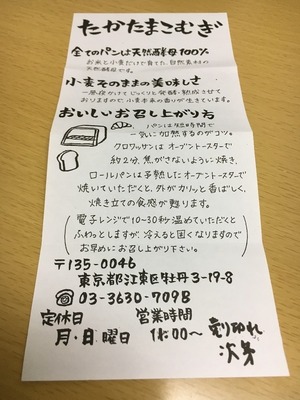 たかたまこむぎ
全てのパンは天然酵母100%
お米と小麦だけで育てた、自然素材の
天然酵母です。
小麦そのままの美味しさ
一昼夜かけてじっくりと発酵・熟成させて
おりますので、小麦本来の香りが生きています。
おいしいお召し上がり方
パンは短時間で
一気に加熱するのがコツ。
クロワッサンは オーブントースターで
約2分、焦がさないように焼き、
ロールパンは予熱したオーブントースターで
焼いていただくと、外がカリッと香ばしく、
焼き立ての食感が甦ります。
(電子レンジで10-30秒温めていただくと
ふわっとしますが、冷えると固くなりますので
お早めにお召し上がり下さい。)
〒135-0046
東京都江東区牡丹3-19-8
☎03-3630-7098
定休日 営業時間
月・日曜日 11:00〜 売り切れ
次第